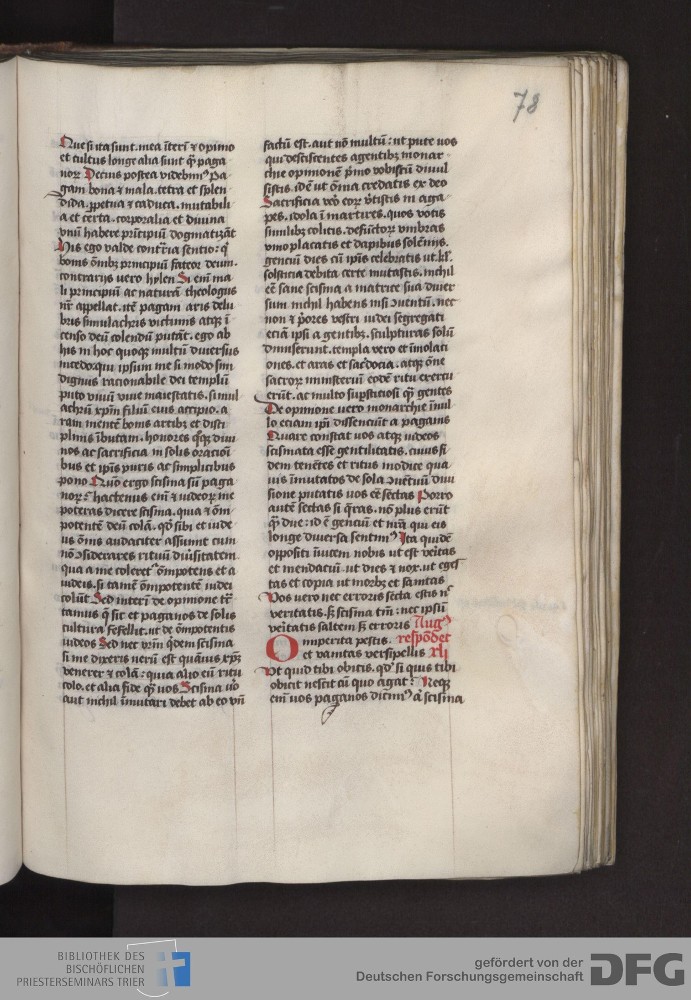 78
Que si ita sunt. mea īteri᷑ ⁊ opinio
et cultus longe alia sunt q̄ꝫ paga
noꝝ Decius postea videbimꝰ Pa
gani bona ⁊ mala. tetra et splen
dida. ꝑpetua ⁊ caduca. mutabili
a et certa. corporalia et diuina
vnū habere principiū dogmatizāt
His ego valde contͬria sentio: qͥ
bonis ōmībꝫ principiū fateor deum.
contrarijs uero hylen Si em̄ ma
li principiū ac naturā theologus
nr̄ appellat. itē pagani aris delu
bris simulachris victimis atqꝫ ī
censo deū colendū putāt. ego ab
his in hoc quoqꝫ multū diuersus
incedo. qui ipsum me si modo sim
dignus racionabile dei templū
puto viuū viue maiestatis. simul
achrū xp̄m filiū eius accipio. a
ram mentē bonis artibꝫ et disci
plinis ībutam. honores qͦsqꝫ diui
nos ac sacrificia in solis oracioī
bus et ip̄is puris ac simplicibus
pono Quō ergo scisma sū paga
noꝝ? hactenus em̄ ⁊ iudeoꝝ me
poteras dicere scisma. quia ⁊ ōm
potentē deū colā. qd̓ sibi et iude
us ōmis audaciter assumit cum
nō ꝯsiderares rituū diuͬsitatem
qua a me coleret᷑ ōmpotens et a
iudeis. si tamē ōmpotentē iudei
colūt Sed interī de opinione tͬc
tamus q̄ꝫ sit et paganos de solis
cultura fefellit. ut de ōmpotentis
iudeos Sed nec vr̄m qͥdem scisma
si me dixeris uerū est quāuis xp̄ꝫ
venerer ⁊ colā: quia alio eū ritu
colo. et alia fide q̄ꝫ uos Scisma uͦo
aut nichil īmutari debet ab eo vn̄
factū est. aut nō multū: ut pute uos
qui desciscentes a gentibꝫ monar
chie opinionē pͥmo vobiscū diuul
sistis. id ē ut ōmia credatis ex deo
Sacrificia vͦo eoꝝ vͬtistis in aga
pes. idola ī martires. quos votis
similibꝫ colitis. defūctoꝝ vmbras
vino placatis et dapibus solēnes
genciū dies cū ip̄is celebratis ut kl᷑.
solsticia debita certe mutastis. nichil
ec̄ sane scisma a matrice sua diuer
sum nichil habens nisi ꝯuentū. nec
non ⁊ pͥores vestri iudei segregati
eciā ipsi a gentibꝫ. sculpturas solū
dimiserunt. templa vero et īmolati
ones. et aras et sac̓docia. atqꝫ ōne
sacroꝝ ministeriū eodē ritu exercu
erūt. ac multo suꝑsticiosi q̄ꝫ gentes
De opinione uero monarchie ī nul
lo eciam ip̄i dissenciūt a paganis
Quare constat uos atqꝫ iudeos
scismata esse gentilitatis. cuius fi
dem tenētes et ritus modice qua
uis īmutatos de sola ꝯuētuū diui
sione putatis uos ec̄ sectas Porro
autē sectas si qͥras. nō plus erūt
q̄ꝫ due: id ē genciū et nr̄a qui eis
longe diuersa sentimꝰ Ita quidē
oppositi īuicem nobis ut est veritas
et mendaciū. ut dies ⁊ nox. ut eges
tas et copia ut morbꝫ et sanitas
Vos uero nec erroris secta estis nͨ
veritatis. ꝫ scisma tm̄: nec ipsū
veritatis saltem ꝫ erroris Augꝰ
Omperita pestis. respōdet
et vanitas versipellis xli
Vt quid tibi obicis. qd̓ si quis tibi
obicit nescit ān quo agat? Neqꝫ
em̄ uos paganos dicimꝰ aͧ scisma
BIBLIOTHEK DES
BISCHÖFLICHEN
PRIESTERSEMINARS TRIER
gefördert von der
Deutschen Forschungsgemeinschaft
DFG